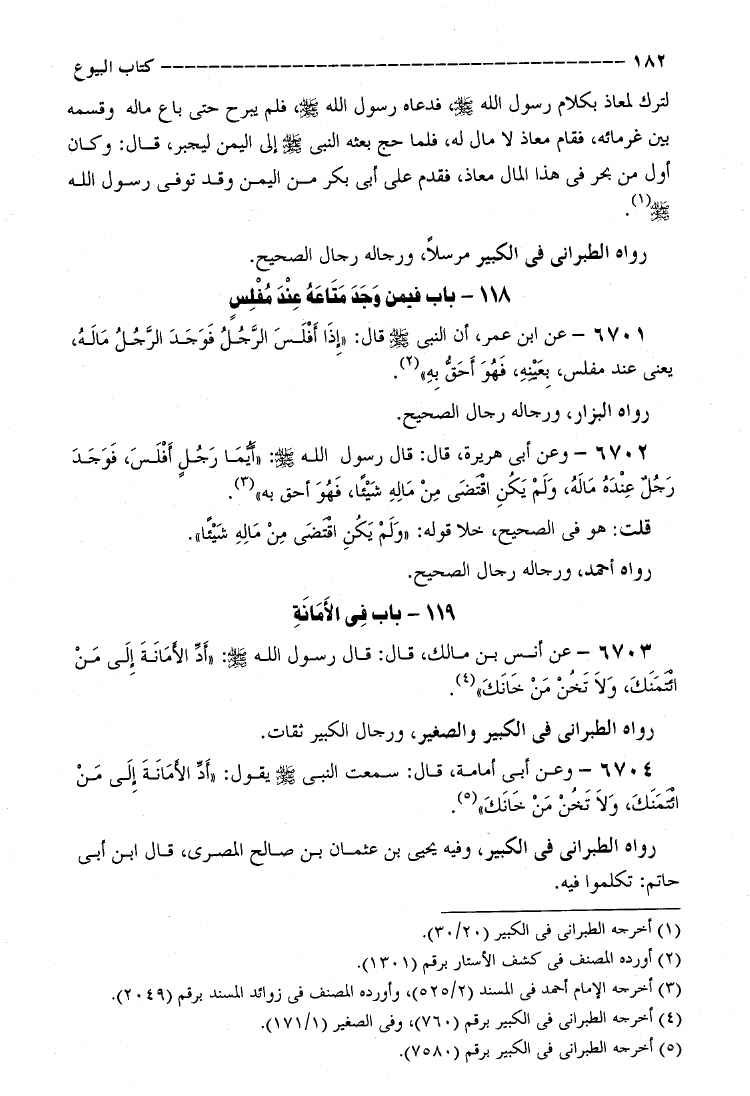 ١٨٢ ------------------------------------------ كتاب البيوع
لترك لمعاذ بكلام رسول الله ﷺ، فدعاه رسول الله ﷺ، فلم يبرح حتى باع ماله وقسمه
بين غرمائه، فقام معاذ لا مال له، فلما حج بعثه النبى ﷺ إلى اليمن ليجبر، قال: وكان
أول من بحر فى هذا المال معاذ، فقدم على أبى بكر من اليمن وقد توفى رسول الله
ﷺ(١).
رواه الطبرانى فى الكبير مرسلاً، ورجاله رجال الصحيح.
١١٨ - باب فيمن وَجَدَ مَتَاعَهُ عِنْدَ مُفْلِسٍ
٦٧٠١ - عن ابن عمر، أن النبى ﷺ قال: «إِذَا أَفْلَسَ الرَّجُلُ فَوَجَدَ الرَّجُلُ مَالَهُ،
يعنى عند مفلس، بِعَيْنِهِ، فَهُوَ أَحَقُّ بِهِ»(٢).
رواه البزار، ورجاله رجال الصحيح.
٦٧٠٢ - وعن أبى هريرة، قال: قال رسول الله ﷺ: «أَيُّمَا رَجُلٍ أَفْلَسَ، فَوَجَدَ
رَجُلٌ عِنْدَهُ مَالَهُ، وَلَمْ يَكُنِ اقْتَضَى مِنْ مَالِهِ شَيْئًا، فَهُوَ أحق به»(٣).
قلت: هو فى الصحيح، خلا قوله: «وَلَمْ يَكُنِ اقْتَضَى مِنْ مَالِهِ شَيْئًا».
رواه أحمد، ورجاله رجال الصحيح.
١١٩ - باب فِى الأَمَانَةِ
٦٧٠٣ - عن أنس بن مالك، قال: قال رسول الله ﷺ: «أَدِّ الأَمَانَةَ إِلَى مَنْ
ائْتَمَنَكَ، وَلاَ تَخُنْ مَنْ خَانَكَ»(٤).
رواه الطبرانى فى الكبير والصغير، ورجال الكبير ثقات.
٦٧٠٤ - وعن أبى أمامة، قال: سمعت النبى ﷺ يقول: «أَدِّ الأَمَانَةَ إِلَى مَنْ
ائْتَمَنَكَ، وَلاَ تَخُنْ مَنْ خَانَكَ»(٥).
رواه الطبرانى فى الكبير، وفيه يحيى بن عثمان بن صالح المصرى، قال ابن أبى
حاتم: تكلموا فيه.
(١) أخرجه الطبرانى فى الكبير (٣٠/٢٠).
(٢) أورده المصنف فى كشف الأستار برقم (١٣٠١).
(٣) أخرجه الإمام أحمد فى المسند (٥٢٥/٢)، وأورده المصنف فى زوائد المسند برقم (٢٠٤٩).
(٤) أخرجه الطبرانى فى الكبير برقم (٧٦٠)، وفى الصغير (١٧١/١).
(٥) أخرجه الطبرانى فى الكبير برقم (٧٥٨٠).